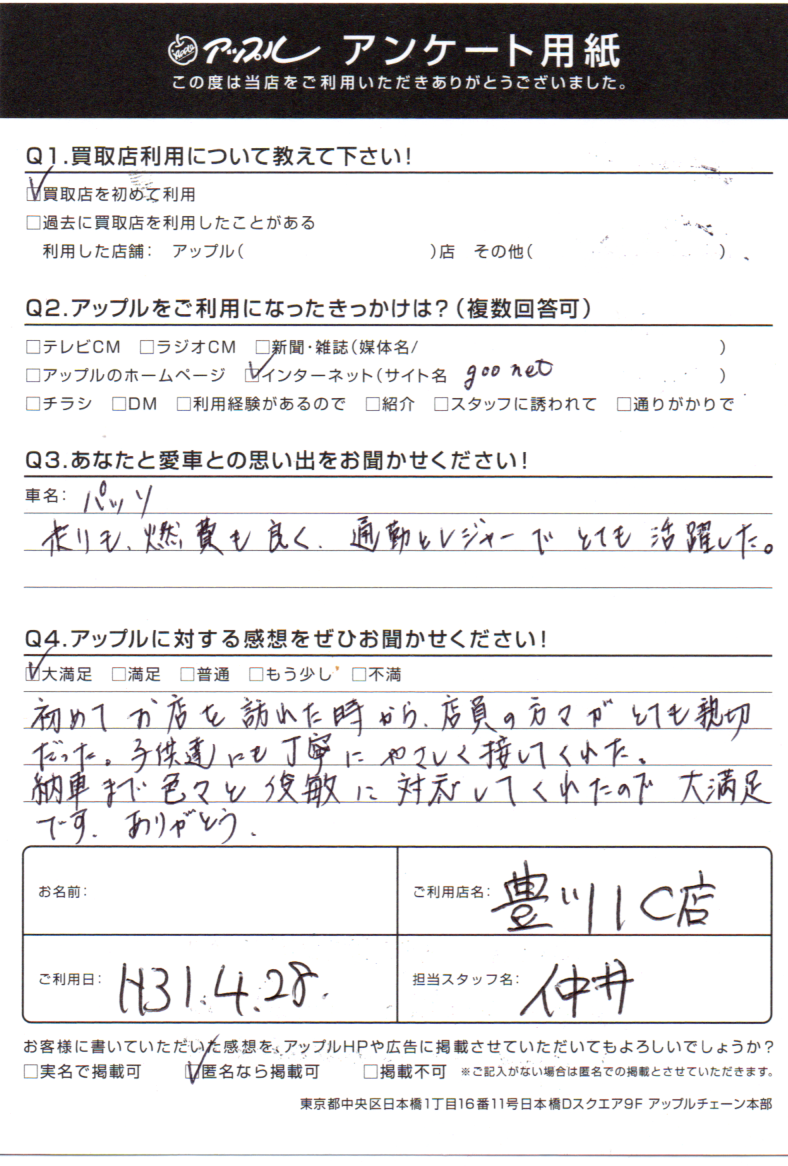 Apple アップル アンケート用紙
この度は当店をご利用いただきありがとうございました。
Q1.買取店利用について教えて下さい!
☑買取店を初めて利用
□過去に買取店を利用したことがある
利用した店舗: アップル( )店 その他( )
Q2.アップルをご利用になったきっかけは?(複数回答可)
□テレビCM □ラジオCM □新聞・雑誌(媒体名/ )
□アップルのホームページ ☑インターネット(サイト名 goo net )
□チラシ □DM □利用経験があるので □紹介 □スタッフに誘われて □通りがかりで
Q3.あなたと愛車との思い出をお聞かせください!
車名: パッソ
走りも、燃費も良く、通勤とレジャーでとても活躍した。
Q4.アップルに対する感想をぜひお聞かせください!
☑大満足 □満足 □普通 □もう少し □不満
初めてお店を訪れた時から、店員の方々がとても親切
だった。子供達にも丁寧にやさしく接してくれた。
納車まで色々と俊敏に対応してくれたので大満足
です。ありがとう。
お名前: ご利用店名: 豊川IC店
ご利用日: H31.4.28. 担当スタッフ名: 仲井
お客様に書いていただいた感想を、アップルHPや広告に掲載させていただいてもよろしいでしょうか?
□実名で掲載可 ☑匿名なら掲載可 □掲載不可 ※ご記入がない場合は匿名での掲載とさせていただきます。
東京都中央区日本橋1丁目16番11号日本橋Dスクエア9F アップルチェーン本部